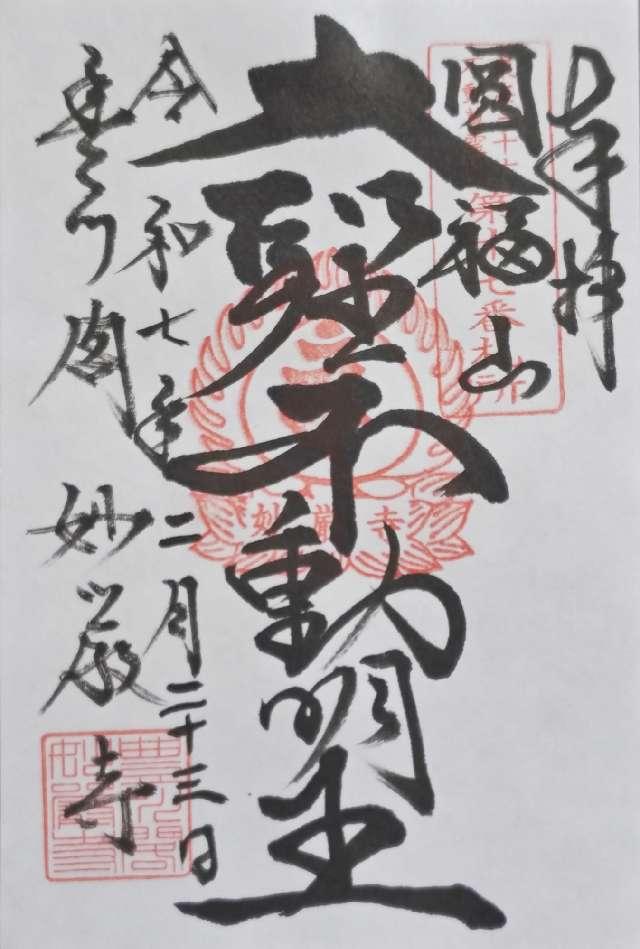 奉拝
圓福山
第十七番札所
大聖不動明王
妙厳寺
令和七年二月二十三日
豊川閣 妙厳寺